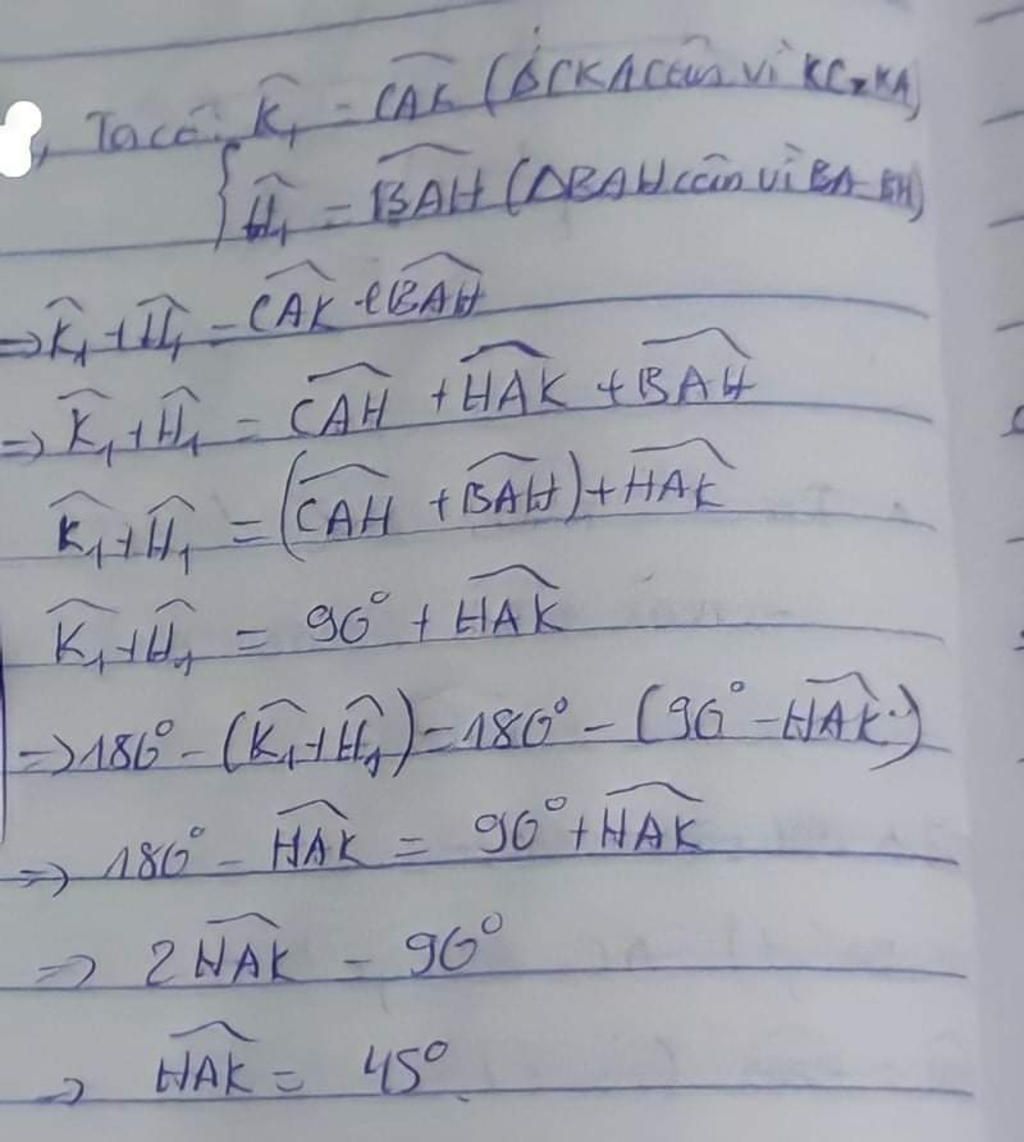 , Ta có: K̂₁ = \widehat{CAK} (ΔCKA cân vì KC=KA)
{Ĥ₁ = \widehat{BAH} (ΔBAH cân vì BA=BH)
⇒ K̂₁ + Ĥ₁ = \widehat{CAK} + \widehat{BAH}
⇒ K̂₁ + Ĥ₁ = \widehat{CAH} + \widehat{HAK} + \widehat{BAH}
K̂₁ + Ĥ₁ = (\widehat{CAH} + \widehat{BAH}) + \widehat{HAK}
K̂₁ + Ĥ₁ = 90° + \widehat{HAK}
⇒ 180° - (K̂₁ + Ĥ₁) = 180° - (90° - \widehat{HAK})
⇒ 180° - \widehat{HAK} = 90° + \widehat{HAK}
⇒ 2\widehat{HAK} = 90°
⇒ \widehat{HAK} = 45°